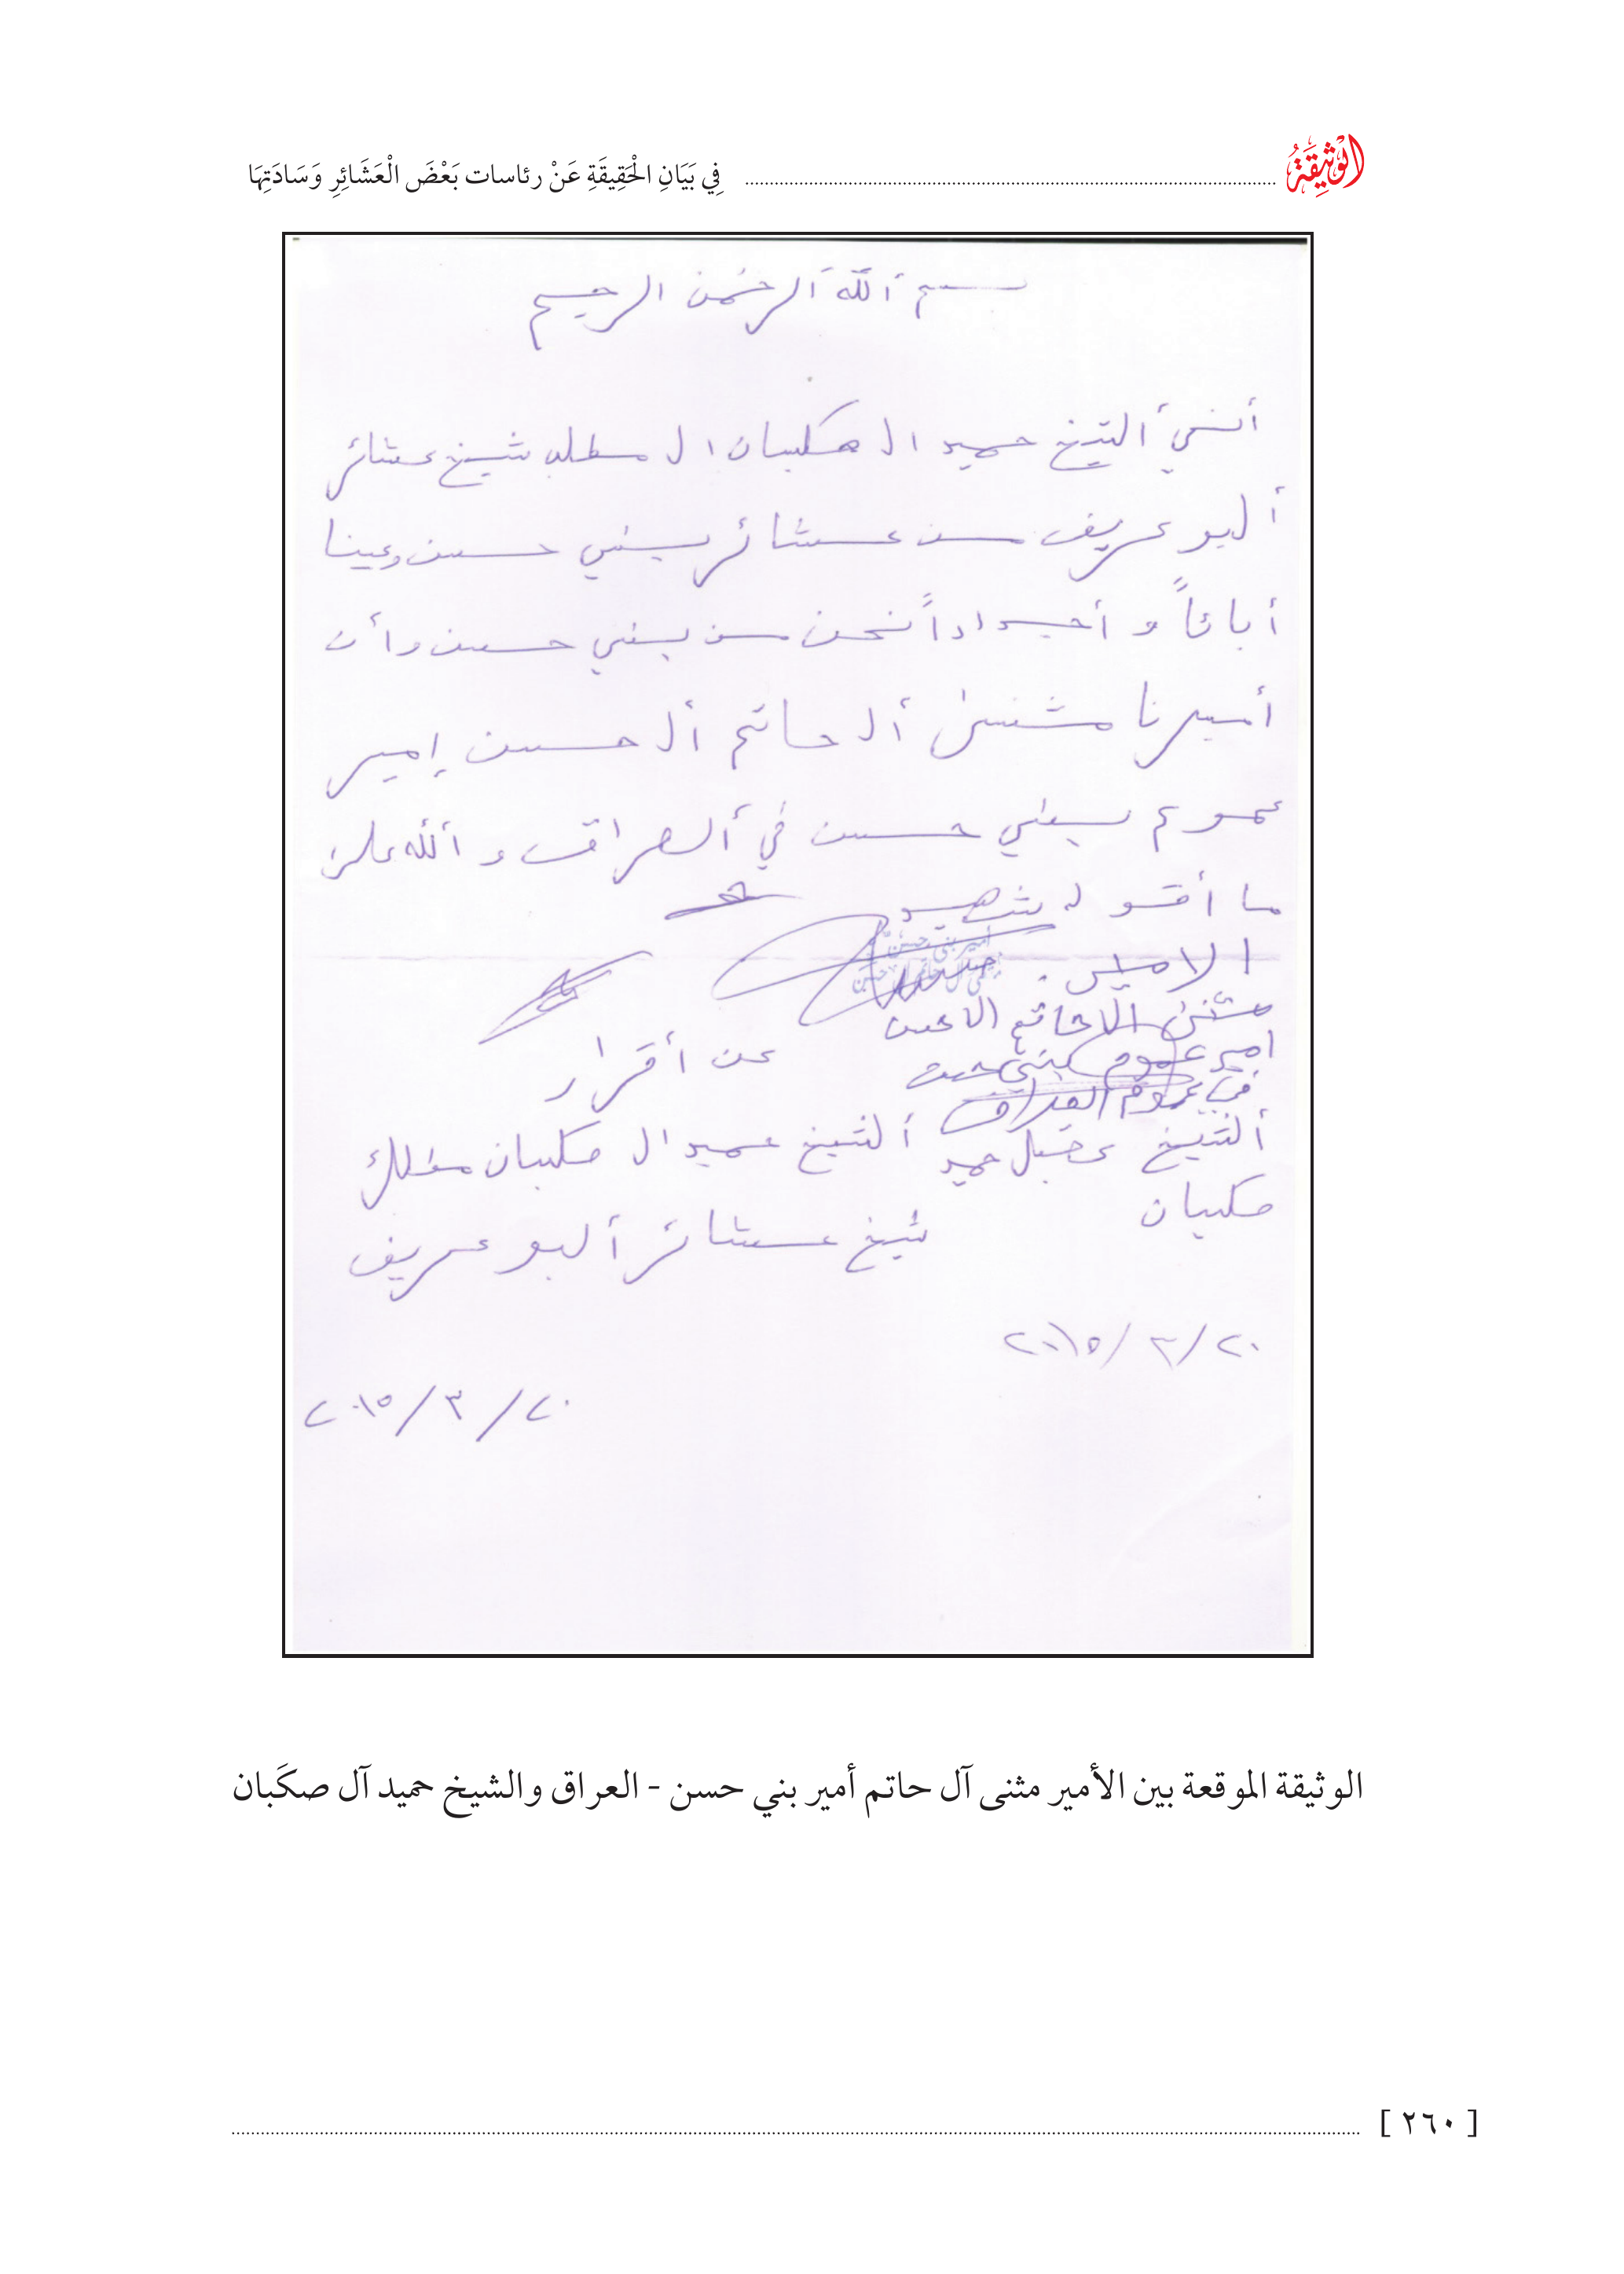 الْوَثِيقَةُ
فِي بَيَانِ الْحَقِيقَةِ عَنْ رئاسات بَعْضَ الْعَشَائِرِ وَسَادَتِهَا
بسم ألله ألرحمن الرحيم
أنني ألشيخ حميد ال صكبان ال مطلب شيخ عشائر
ألبو عريف من عشائر بني حسن وعينا
أبائاً و أجداداً نحن من بني حسن وأن
أميرنا مثنى أل حاتم أل حسن إمير
عموم بني حسن في ألعراق و ألله على
ما أقول شهيد
أمير بني حسن
الامير
مثنى ال حاتم ال حسن
امير عموم بني حسن
في عموم العراق
عن أقرار
ألشيخ حميد ال صكبان مطلك
شيخ عشائر ألبو عريف
ألشيخ عقيل حميد
صكبان
٢٠/٣/٢٠١٥
٢٠/٣/٢٠١٥
الوثيقة الموقعة بين الأمير مثنى آل حاتم أمير بني حسن - العراق والشيخ حميد آل صكَبان
[ ٢٦٠ ]